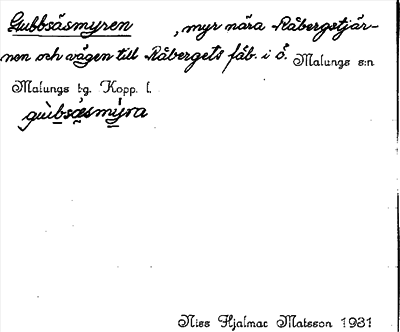 Gubbsåsmyren , myr nära Råbergstjär-
nen och vägen till Råbergets fäb. i ö.
Malungs s:n
Malungs tg. Kopp. l.
gùbsåsmýra
Niss Hjalmar Matsson 1931